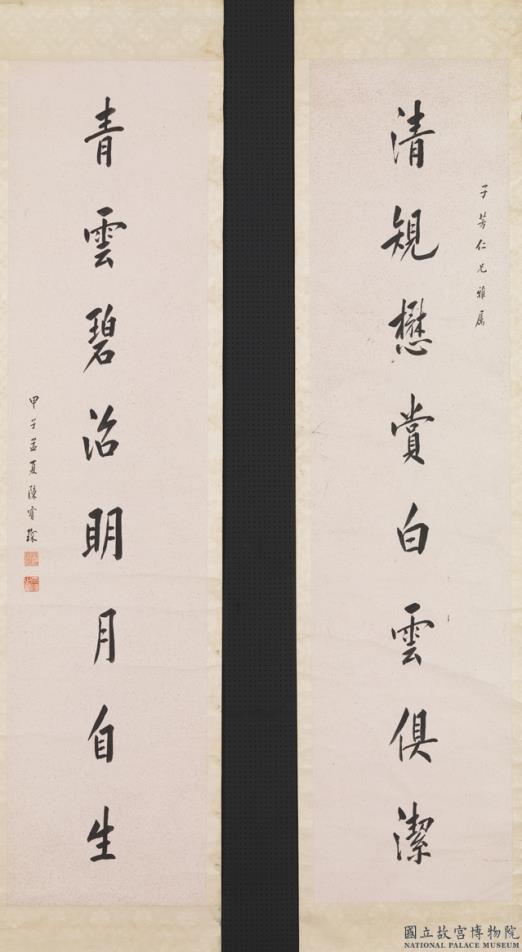 子芳仁兄雅属
清䂓懋賞白雲俱潔
青雲碧治明月自生
甲子孟夏陳
國立故宮博物院
NATIONAL PALACE MUSEUM